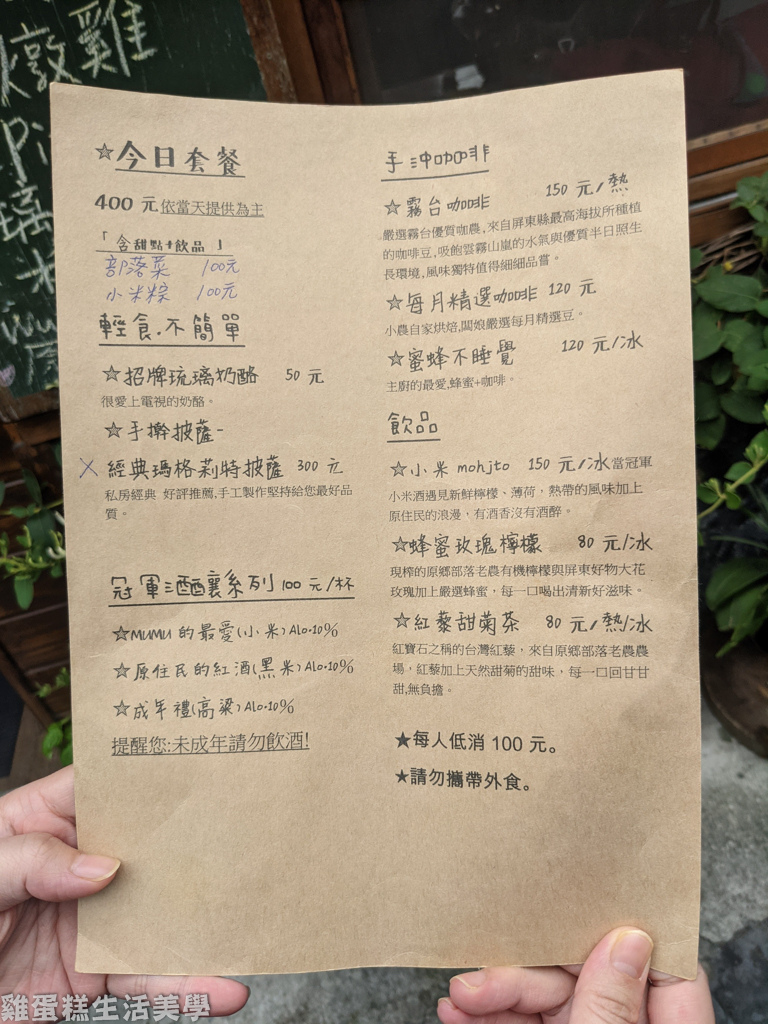 燉雞
Pi
☆今日套餐
400 元 依當天提供為主
「含甜點+飲品」
部落菜 100元
小米粽 100元
輕食.不簡單
☆招牌琉璃奶酪 50 元
很愛上電視的奶酪。
☆手擀披薩-
X 經典瑪格莉特披薩 300 元
私房經典 好評推薦,手工製作堅持給您最好品
質。
冠軍酒釀系列 100 元/杯
☆MUMU 的最愛(小米) Alo.10%
☆原住民的紅酒(黑米) Alo.10%
☆成年禮(高粱) Alo.10%
提醒您:未成年請勿飲酒!
手沖咖啡
☆霧台咖啡 150 元/熱
嚴選霧台優質咖農,來自屏東縣最高海拔所種植
的咖啡豆,吸飽雲霧山嵐的水氣與優質半日照生
長環境,風味獨特值得細細品嘗。
☆每月精選咖啡 120 元
小農自家烘焙,闆娘嚴選每月精選豆。
☆蜜蜂不睡覺 120 元/冰
主廚的最愛,蜂蜜+咖啡。
飲品
☆小米 mohjto 150 元/冰當冠軍
小米酒遇見新鮮檸檬、薄荷,熱帶的風味加上
原住民的浪漫,有酒香沒有酒醉。
☆蜂蜜玫瑰檸檬 80 元/冰
現榨的原鄉部落老農有機檸檬與屏東好物大花
玫瑰加上嚴選蜂蜜,每一口喝出清新好滋味。
☆紅藜甜菊茶 80 元/熱/冰
紅寶石之稱的台灣紅藜,來自原鄉部落老農農
場,紅藜加上天然甜菊的甜味,每一口回甘甘
甜,無負擔。
★每人低消 100 元。
★請勿攜帶外食。
雞蛋糕生活美學